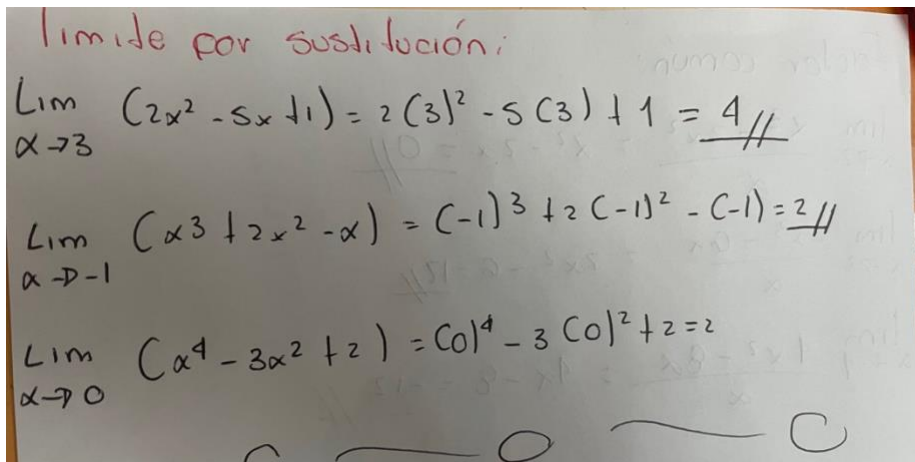 límite por sustitución:
Lim (2x² - 5x + 1) = 2(3)² - 5(3) + 1 = 4//
x→3
Lim (x3 + 2x² - x) = (-1)³ + 2(-1)² - (-1) = 2//
x→-1
Lim (x⁴ - 3x² + 2) = (0)⁴ - 3(0)² + 2 = 2
x→0